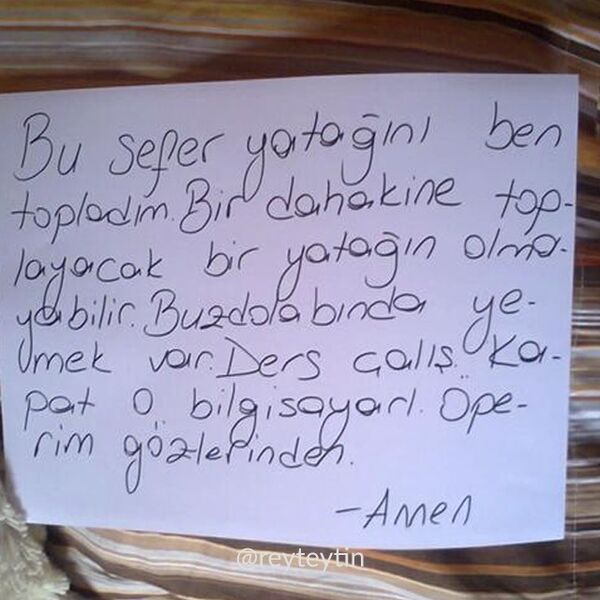 Bu sefer yatağını ben
topladım. Bir dahakine top-
layacak bir yatağın olma-
yabilir. Buzdolabında ye-
mek var. Ders çalış. Ka-
pat o bilgisayarı. Öpe-
rim gözlerinden.
-Annen
@reyteytin